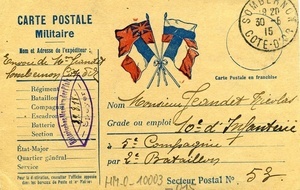 CARTE POSTALE
Militaire
SOMBERNON
30-5
15
COTE-D'OR
Nom et Adresse de l'expéditeur :
Envoi de Mr Jeandet
Sombernon
Régiment
Bataillon
Compagnie
Escadron
Batterie
Section
État-Major
Quartier général
Service
Carte Postale en franchise
Nom : Monsieur Jeandet Nicolas
Grade ou emploi 10e d'Infanterie
5e Compagnie
2e Bataillon
Secteur Postal No 53.